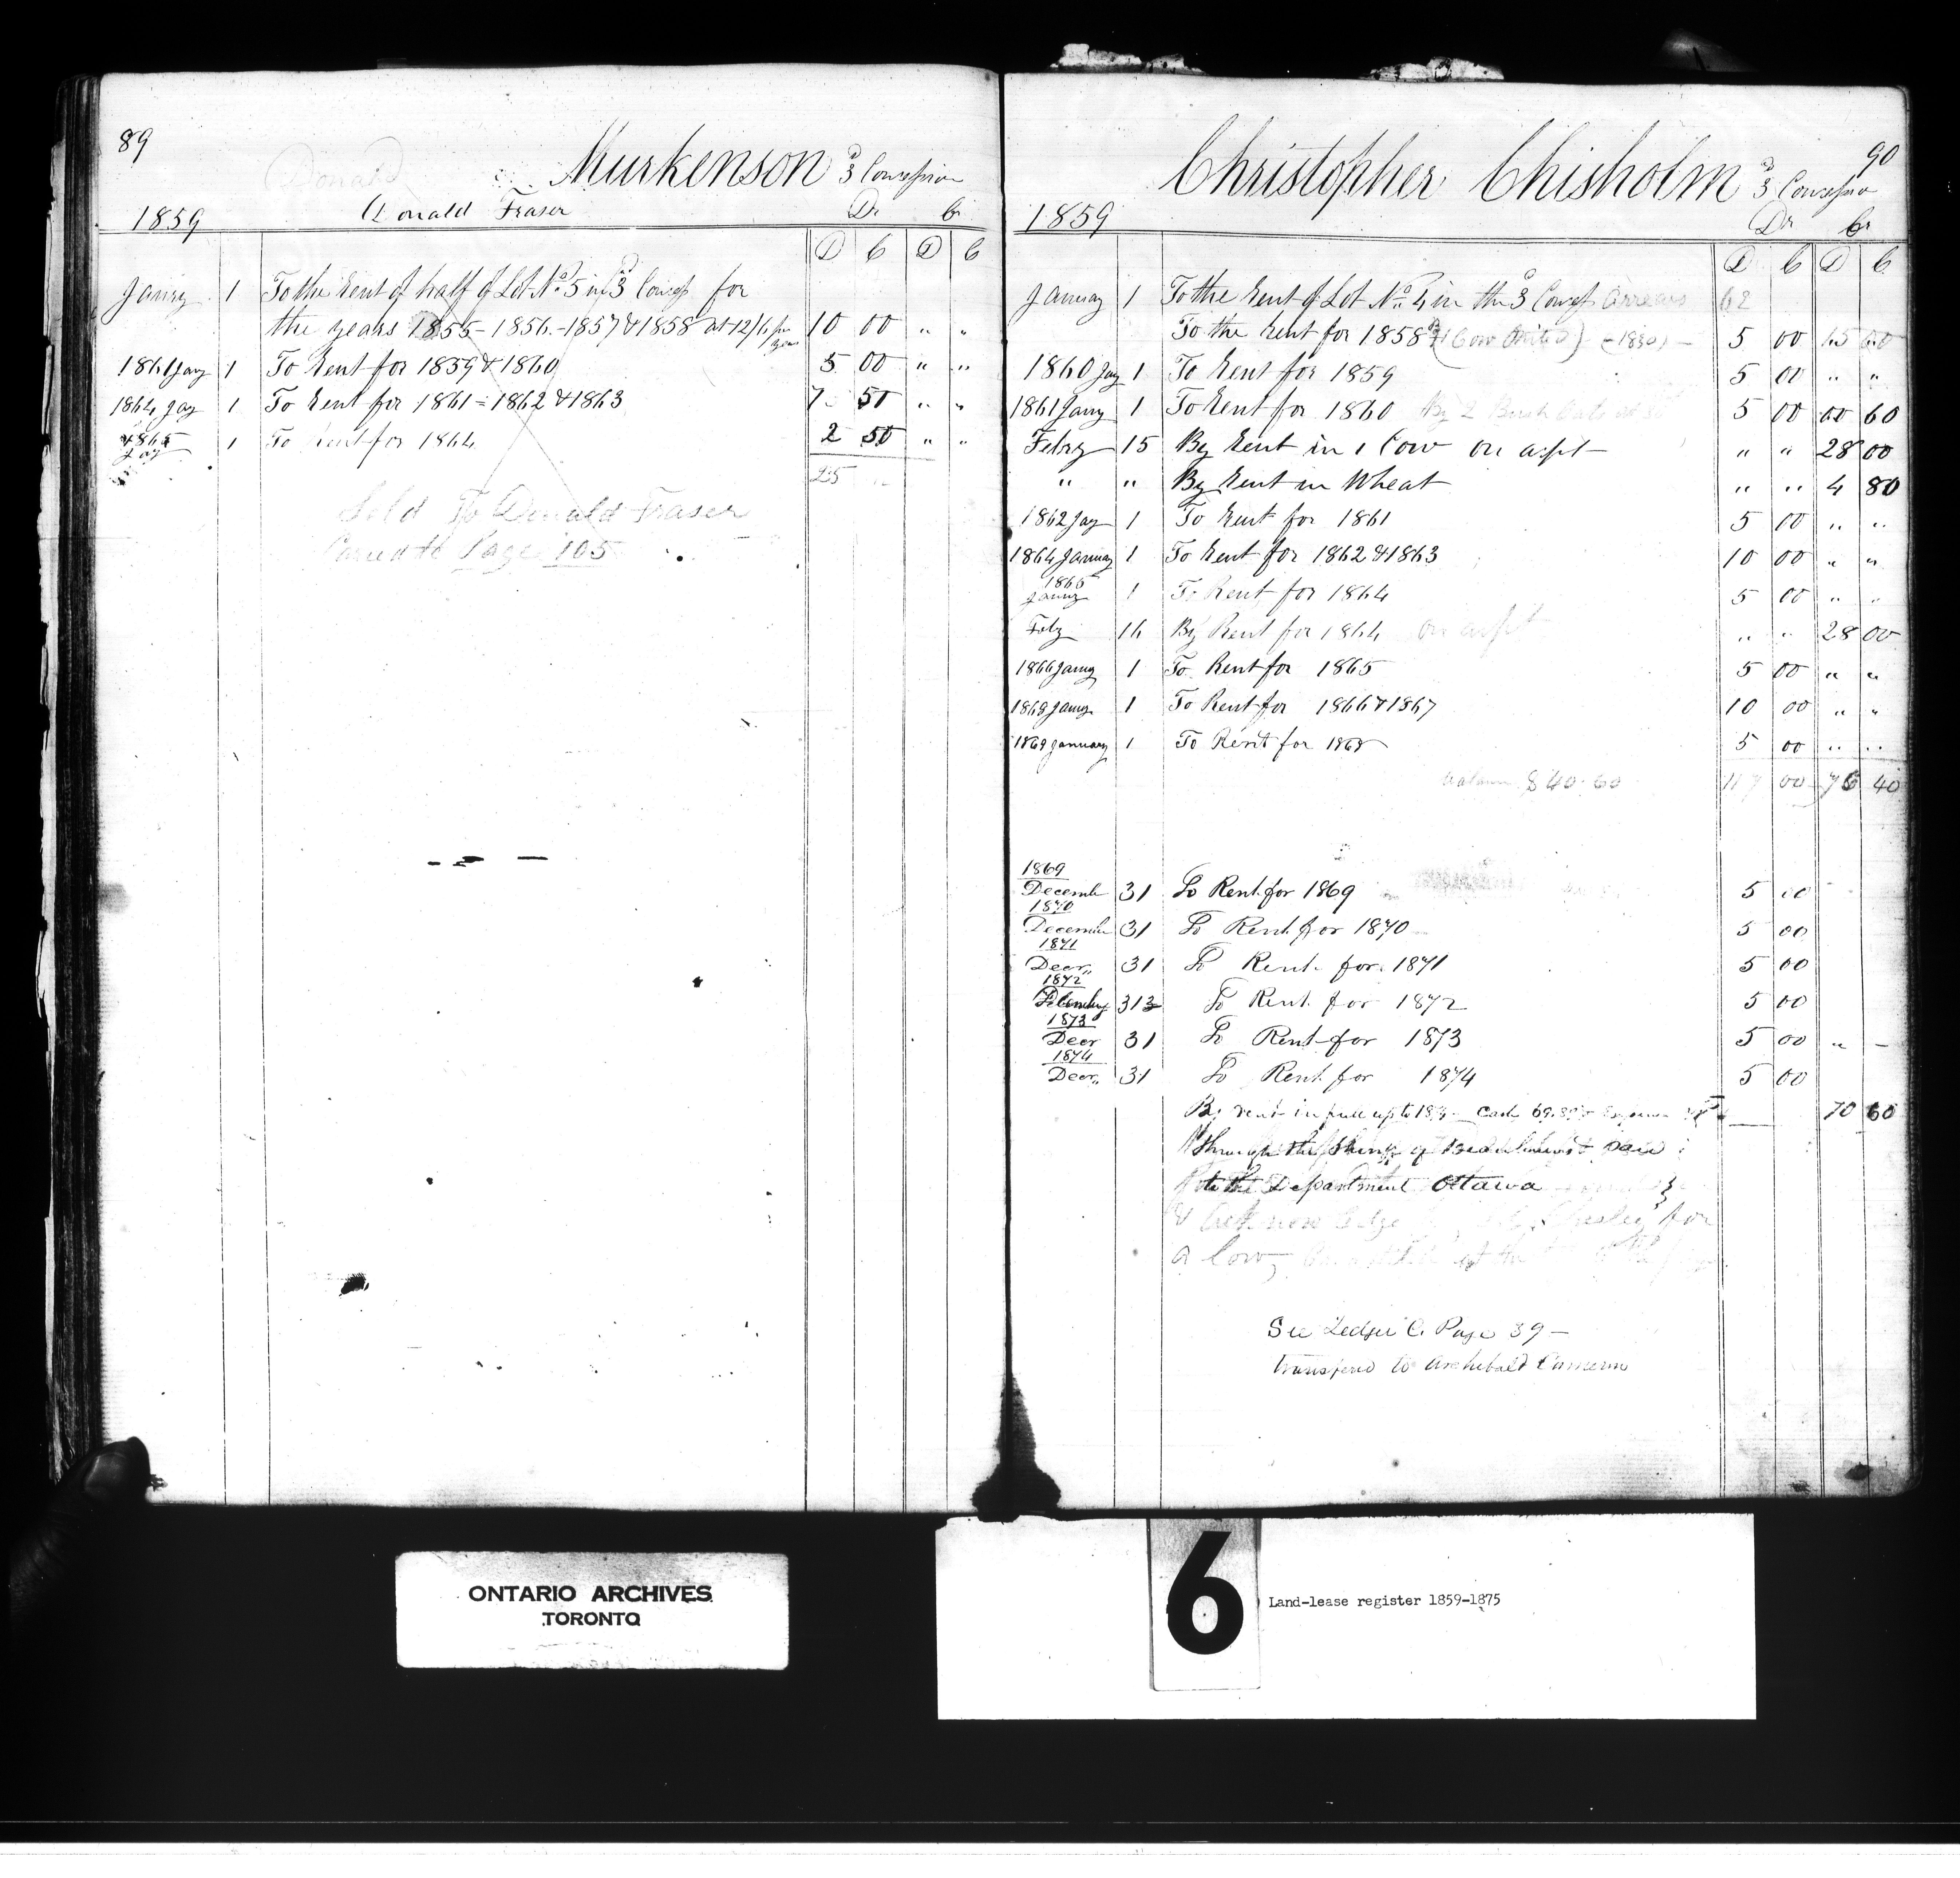 89
Donald Murkenson 3d Concession
1859 Donald Fraser Dr Cr
D C D C
Janry 1 To the Rent of half of Lot No 5 in 3d Concess for
the years 1855 - 1856 - 1857 & 1858 at 12/6 per year 10 00 " "
1861 Jay 1 To Rent for 1859 & 1860 5 00 " "
1864 Jay 1 To Rent for 1861 - 1862 & 1863 7 50 " "
1865 Jay 1 To Rent for 1864 2 50 " "
25
Sold To Donald Fraser
Carried to Page 105
90
Christopher Chisholm 3d Concession
1859 Dr Cr
D C D C
January 1 To the Rent of Lot No 4 in the 3d Concess arrears 62
To the Rent for 1858 5 00 15 00
1860 Jay 1 To Rent for 1859 5 00 " "
1861 Janry 1 To Rent for 1860 By 2 Bush Oats at 5 00 00 60
Febry 15 By Rent in 1 Cow on a/ct 28 00
" " By Rent in Wheat " " 4 80
1862 Jay 1 To Rent for 1861 5 00 " "
1864 January 1 To Rent for 1862 & 1863 10 00 " "
1865 Janry 1 To Rent for 1864 5 00 " "
Feby 16 By Rent for 1864 " " 28 00
1866 Janry 1 To Rent for 1865 5 00 " "
1868 Janry 1 To Rent for 1866 & 1867 10 00 " "
1869 January 1 To Rent for 1868 5 00 " "
balance $40.60 117 00 76 40
1869
Decembe 31 To Rent for 1869 5 00
1870
Decembe 31 To Rent for 1870 5 00
1871
Decr 31 To Rent for 1871 5 00
1872
31 To Rent for 1872 5 00
1873
Decr 31 To Rent for 1873 5 00 " -
1874
Decr 31 To Rent for 1874 5 00
By rent in full up to Cash 69.80 70 60
through the
to the Department Ottawa
Chesley for
a Cow
See Ledger C. Page 39 -
transferd to Archibald Cameron
ONTARIO ARCHIVES
TORONTO
6
Land-lease register 1859-1875